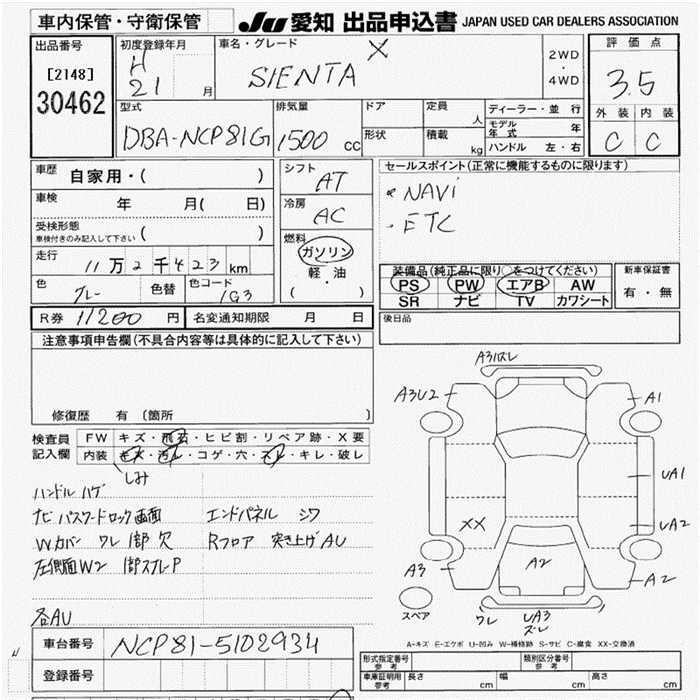 車内保管・守衛保管
JU 愛知 出品申込書 JAPAN USED CAR DEALERS ASSOCIATION
出品番号
[2148]
30462
初度登録年月
H
21 月
車名・グレード
SIENTA X
2WD
・
4WD
評価点
3.5
外装 内装
C C
型式
DBA-NCP81G
排気量
1500 cc
ドア
形状
定員
人
積載
kg
ディーラー・並行
モデル年式 年
ハンドル 左・右
車歴
自家用・( )
車検
年 月( 日)
受検形態
車検付きのみ記入して下さい ( )
走行
11万2千423km
色
グレー
色替
色コード
1G3
シフト
AT
冷房
AC
燃料
ガソリン
・
軽・油
( )
セールスポイント(正常に機能するものに限ります)
・NAVi
・ETC
装備品(純正品に限り○をつけてください)
PS PW エアB AW
SR ナビ TV カワシート
新車保証書
有・無
R券 11200 円
名変通知期限 月 日
後日品
注意事項申告欄(不具合内容等は具体的に記入して下さい)
修復歴 有 〔箇所 〕
検査員
記入欄
FW キズ・飛石・ヒビ割・リペア跡・X要
内装 キズ・汚れ・コゲ・穴・スレ・キレ・破レ
しみ
ハンドル ハゲ
ナビ パスワードロック画面
Wカバー ワレ 1部 欠
左側面W2 1部スプレーP
各AU
エンドパネル シワ
Rフロア 突き上げAU
A3ハズレ
A3U2
A1
UA1
UA2
XX
A2
A3
A2
スペア
ワレ
UA3
ズレ
A-キズ E-エクボ U-凹み W-補修跡 S-サビ C-腐食 XX-交換済
車台番号
NCP81-5102934
登録番号
形式指定番号
参考
類別区分番号
参考
車庫証明用
参考
長さ cm
幅 cm
高さ cm